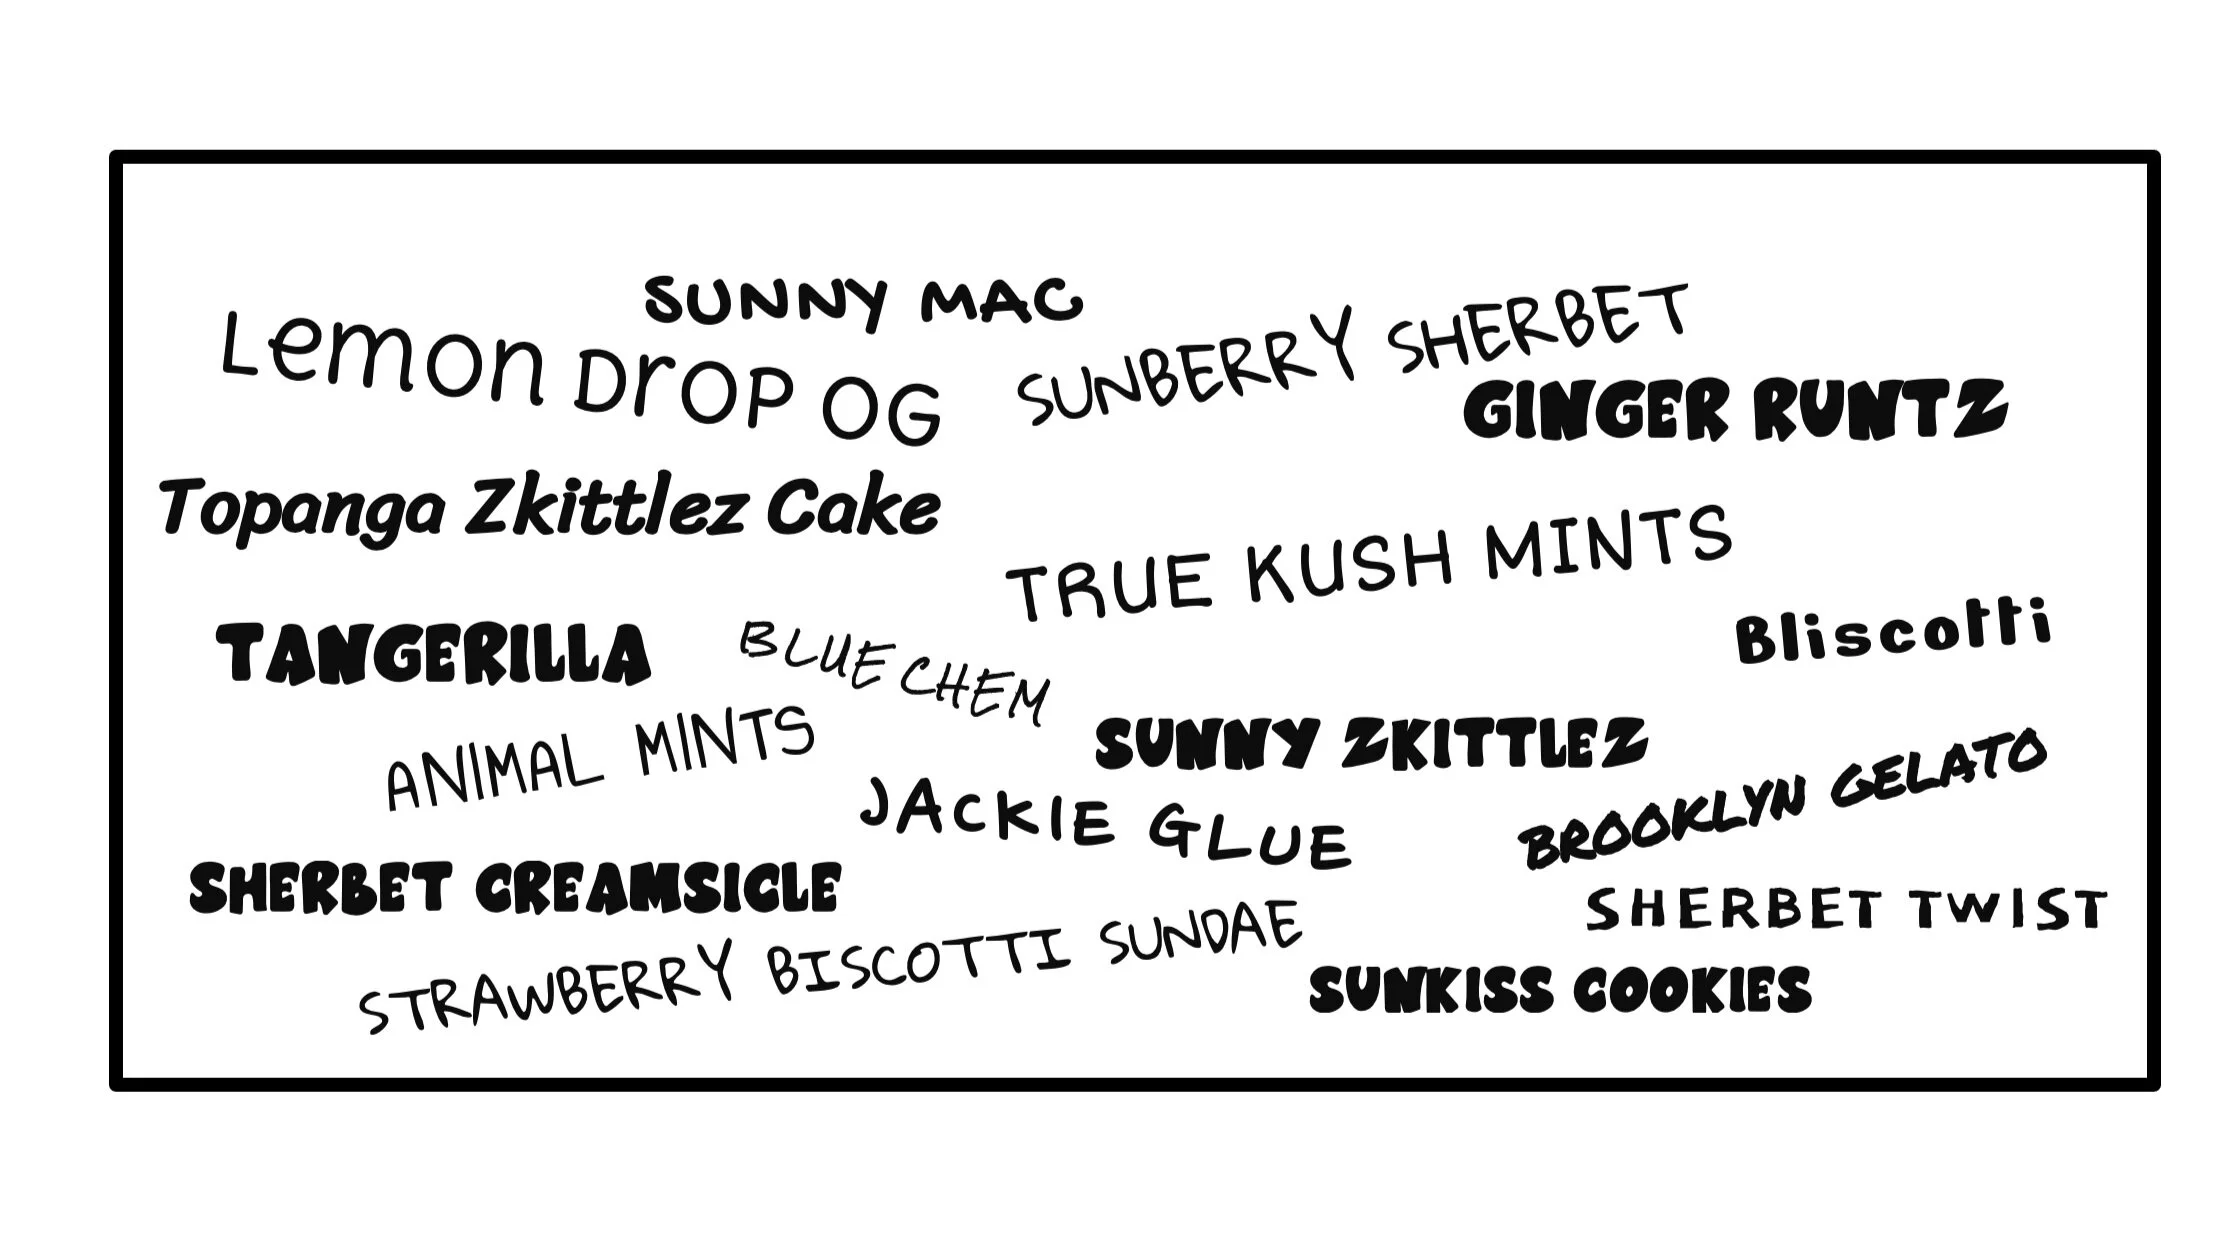 SUNNY MAC
Lemon Drop OG
SUNBERRY SHERBET
GINGER RUNTZ
Topanga Zkittlez Cake
TRUE KUSH MINTS
TANGERILLA
BLUE CHEM
Bliscotti
ANIMAL MINTS
SUNNY ZKITTLEZ
JACKIE GLUE
BROOKLYN GELATO
SHERBET CREAMSICLE
SHERBET TWIST
STRAWBERRY BISCOTTI SUNDAE
SUNKISS COOKIES